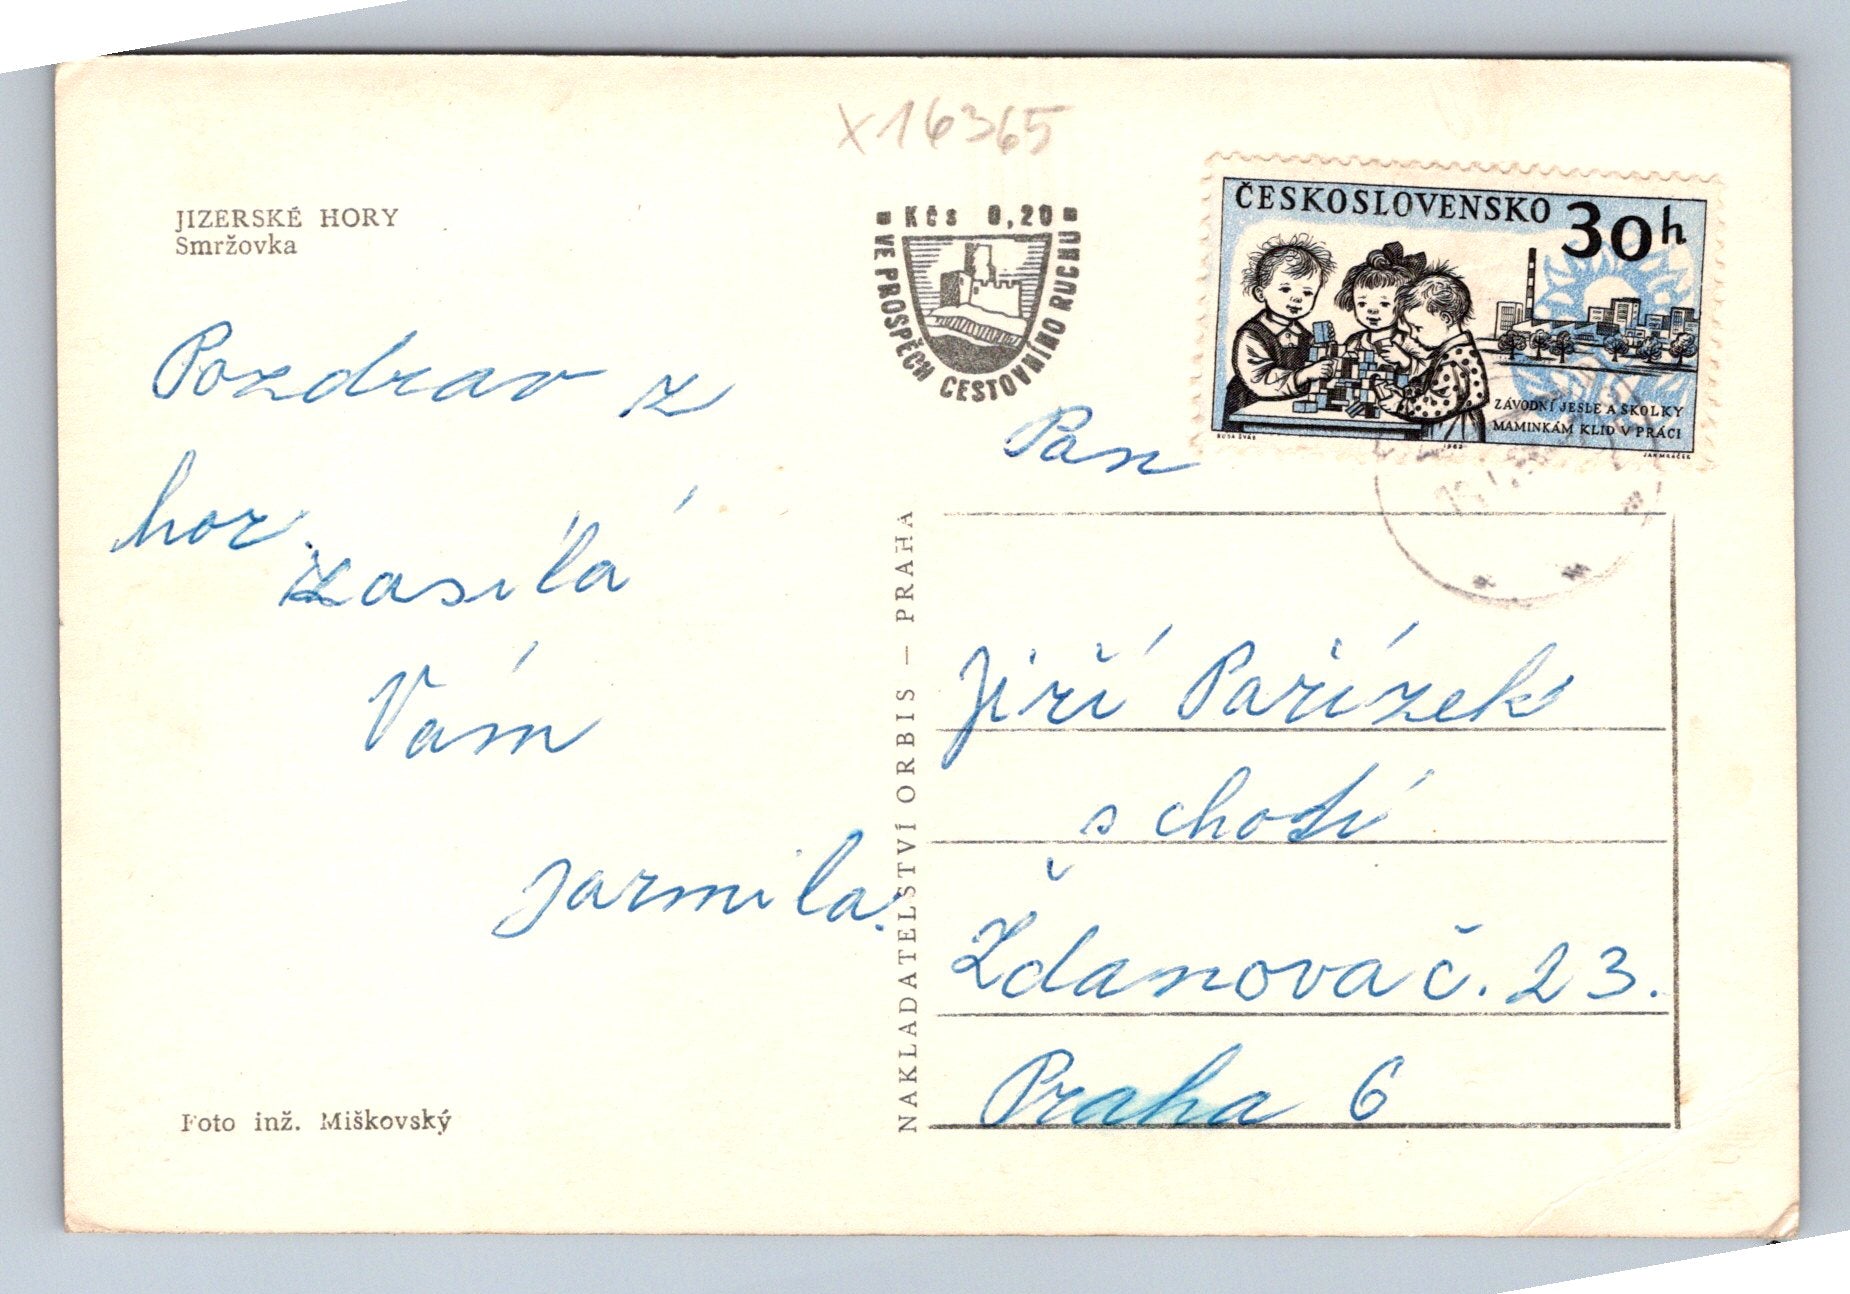 x16365
JIZERSKÉ HORY
Smržovka
Kčs 0,20
VE PROSPĚCH CESTOVNÍHO RUCHU
ČESKOSLOVENSKO 30h
ZÁVODNÍ JESLE A ŠKOLKY
MAMINKÁM KLID V PRÁCI
1962
JAN MRÁČEK
Pozdrav z
hor.
zasílá
Vám
Jarmila.
NAKLADATELSTVÍ ORBIS — PRAHA
Pan
Jiří Pařízek
s chotí
Ždanova č. 23.
Praha 6
Foto inž. Miškovský